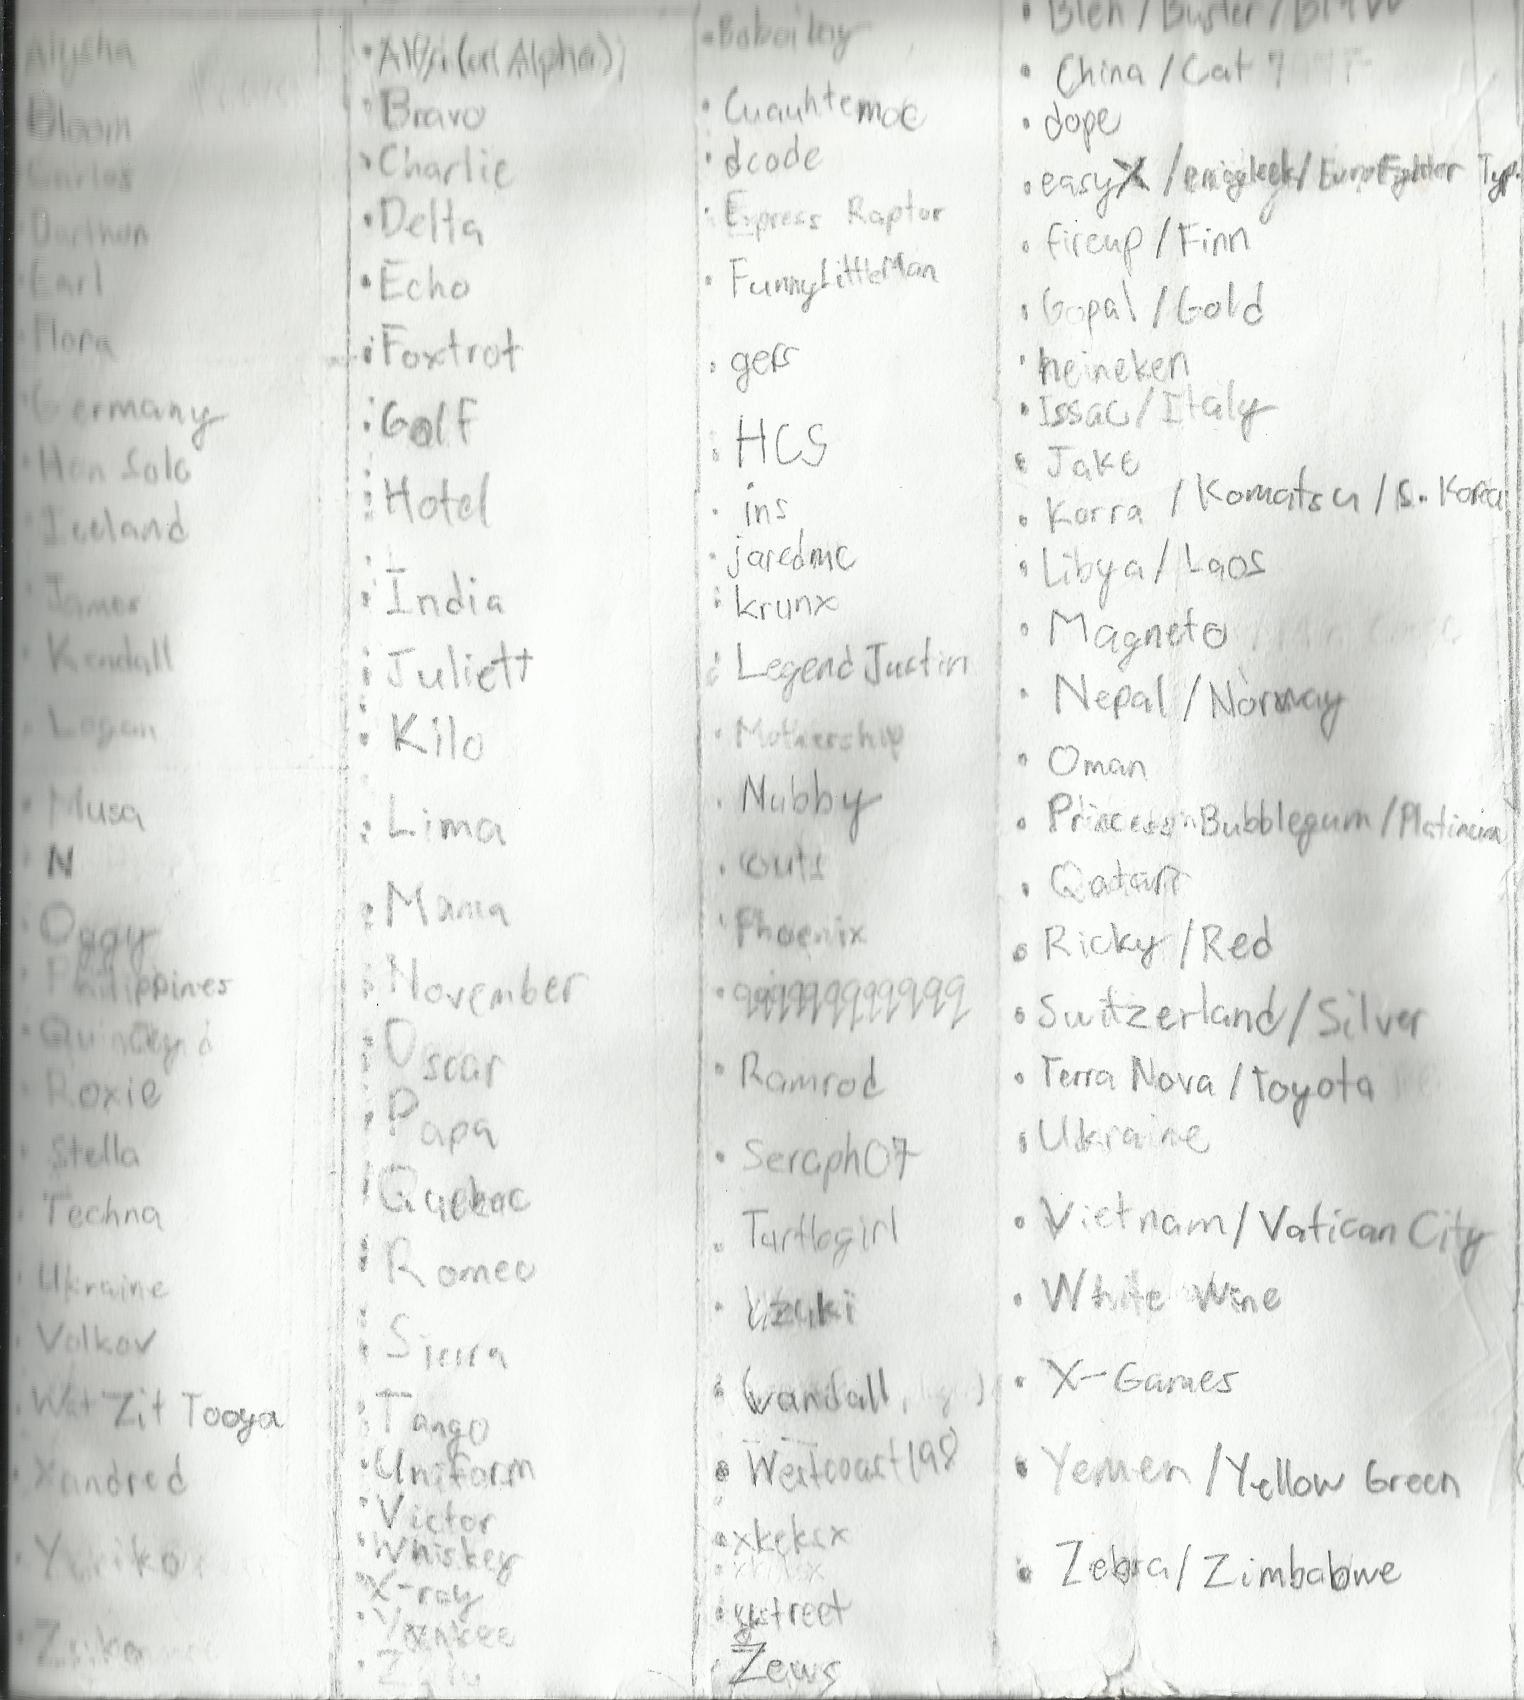 Alysha
Bloom
Carlos
Darthon
Earl
Flora
Germany
Han Solo
Iceland
James
Kendall
Logan
Musa
N
Oggy
Philippines
Roxie
Stella
Techna
Ukraine
Volkov
Wat Zit Tooya
Xandred
Yuriko
• Alfa (or Alpha)
• Bravo
• Charlie
• Delta
• Echo
• Foxtrot
• Golf
• Hotel
• India
• Juliett
• Kilo
• Lima
• Mama
• November
• Oscar
• Papa
• Quebec
• Romeo
• Sierra
• Tango
• Uniform
• Victor
• Whiskey
• X-ray
• Yankee
• Zulu
• Boboiboy
• Cuauhtemoc
• dcode
• Express Raptor
• FunnyLittleMan
• gefs
• HCS
• ins
• jaredmc
• krunx
• Legend Justin
• Mothership
• Nubby
• outs
• Phoenix
• Ramrod
• Seraph07
• Turtlegirl
• Uzuki
• (vandall
• Westcoast198
• xkeksx
• Zews
• Bleh / Buster / BMW
• China / Cat 7
• dope
• easyX / / EuroFighter Typ.
• fireup / Finn
• Gopal / Gold
• heineken
• Issac / Italy
• Jake
• Korra / Komatsu / S. Korea
• Libya / Laos
• Magneto
• Nepal / Norway
• Oman
• Princess Bubblegum / Platinum
• Qatar
• Ricky / Red
• Switzerland / Silver
• Terra Nova / Toyota
• Ukraine
• Vietnam / Vatican City
• White Wine
• X-Games
• Yemen / Yellow Green
• Zebra / Zimbabwe